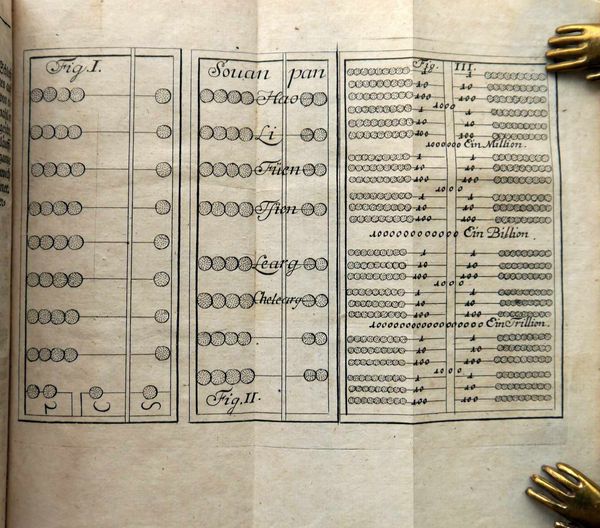 Fig. I.
2 C S
Souan pan
Hao
Li
Tüen
Tsien
Learg
Chelearg
Fig. II.
Fig. III.
10 1
10 10
100 100
1000
1 1
10 10
100 100
1000000 Ein Million.
1 1
10 10
100 100
1000
1 1
10 10
100 100
1000000000000 Ein Billion.
1 1
10 10
100 100
1000
1 1
10 10
100 100
1000000000000000000 Ein Trillion.
1 1
10 10
100 100
1000
1 1
10 10
100 100